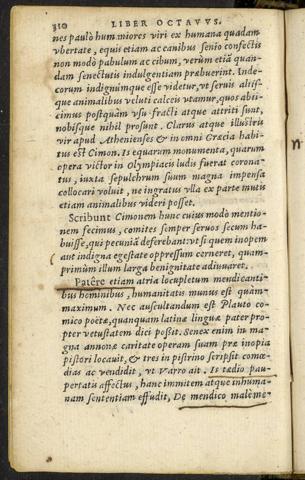 310 LIBER OCTAVVS.
nes paulò humaniores viri ex humana quadam
vbertate, equis etiam ac canibus senio confectis
non modò pabulum ac cibum, verùm etiã quan-
dam senectutis indulgentiam præbuerint. Inde-
corum indignúmque esse videtur, vt seruis aliís-
que animalibus veluti calceis vtamur, quos abii-
cimus postquàm vsu fracti atque attriti sunt,
nobísque nihil prosunt. Clarus atque illustris
vir apud Athenienses & in omni Græcia habi-
tus est Cimon. Is equarum monumenta, quarum
opera victor in Olympiacis ludis fuerat corona-
tus, iuxta sepulchrum suum magna impensa
collocari voluit, ne ingratus vlla ex parte mutis
etiam animalibus videri posset.
Scribunt Cimonem hunc cuius modò mentio-
nem fecimus, comites semper seruos secum ha-
buisse, qui pecuniã deferebant: vt si quem inopem
aut indigna egestate oppressum cerneret, quam-
primùm illum larga benignitate adiuuaret.
Patêre etiam atria locupletum mendicanti-
bus hominibus, humanitatis munus est quàm-
maximum. Nec auscultandum est Plauto co-
mico poëtæ, quanquam latinæ linguæ pater pro-
pter vetustatem dici possit. Senex enim in ma-
gna annonæ caritate operam suam præ inopia
pistori locauit, & tres in pistrino scripsit comœ-
dias ac vendidit, vt Varro ait. Is tædio pau-
pertatis affectus, hanc immitem atque inhuma-
nam sententiam effudit, De mendico malè me-